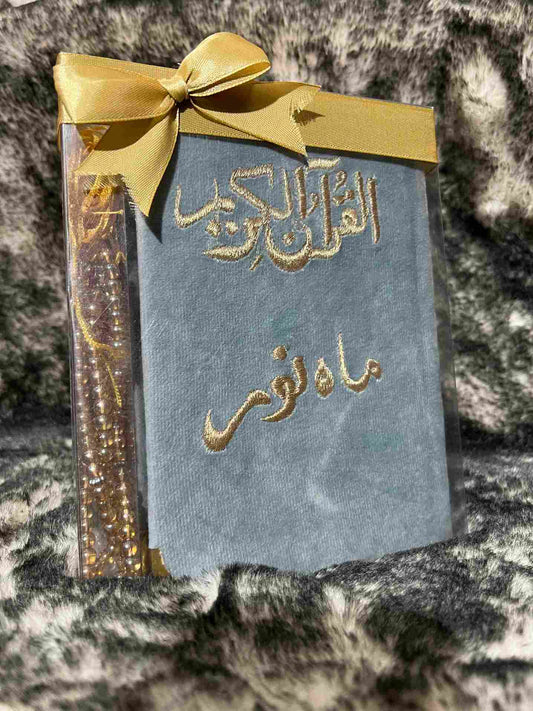 القُرآن الكريم
ماه نور